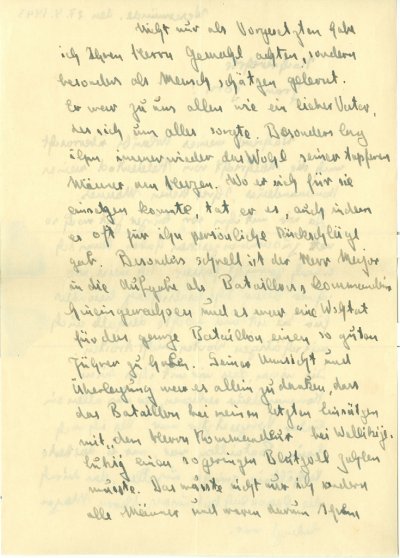 Nicht nur als Vorgesetzten habe
ich Ihren Herrn Gemahl achten, sondern
besonders als Mensch schätzen gelernt.
Er war zu uns allen wie ein lieber Vater,
der sich um alles sorgte. Besonders lag
ihm immer wieder das Wohl seiner tapferen
Männer am Herzen. Wo er sich für sie
einsetzen konnte, tat er es, auch indem
es oft für ihn persönliche Rückschläge
gab. Besonders schnell ist der Herr Major
in die Aufgabe als Bataillonskommandeur
hineingewachsen und es war eine Wohltat
für das ganze Bataillon einen so guten
Führer zu haben. Seiner Umsicht und
Überlegung war es allein zu danken, dass
das Bataillon bei meinen letzten Einsätzen
mit „dem Herrn Kommandeur" bei
einen so geringen Blutzoll zahlen
musste. Das wusste nicht nur ich sondern
alle Männer und waren darum Ihrem